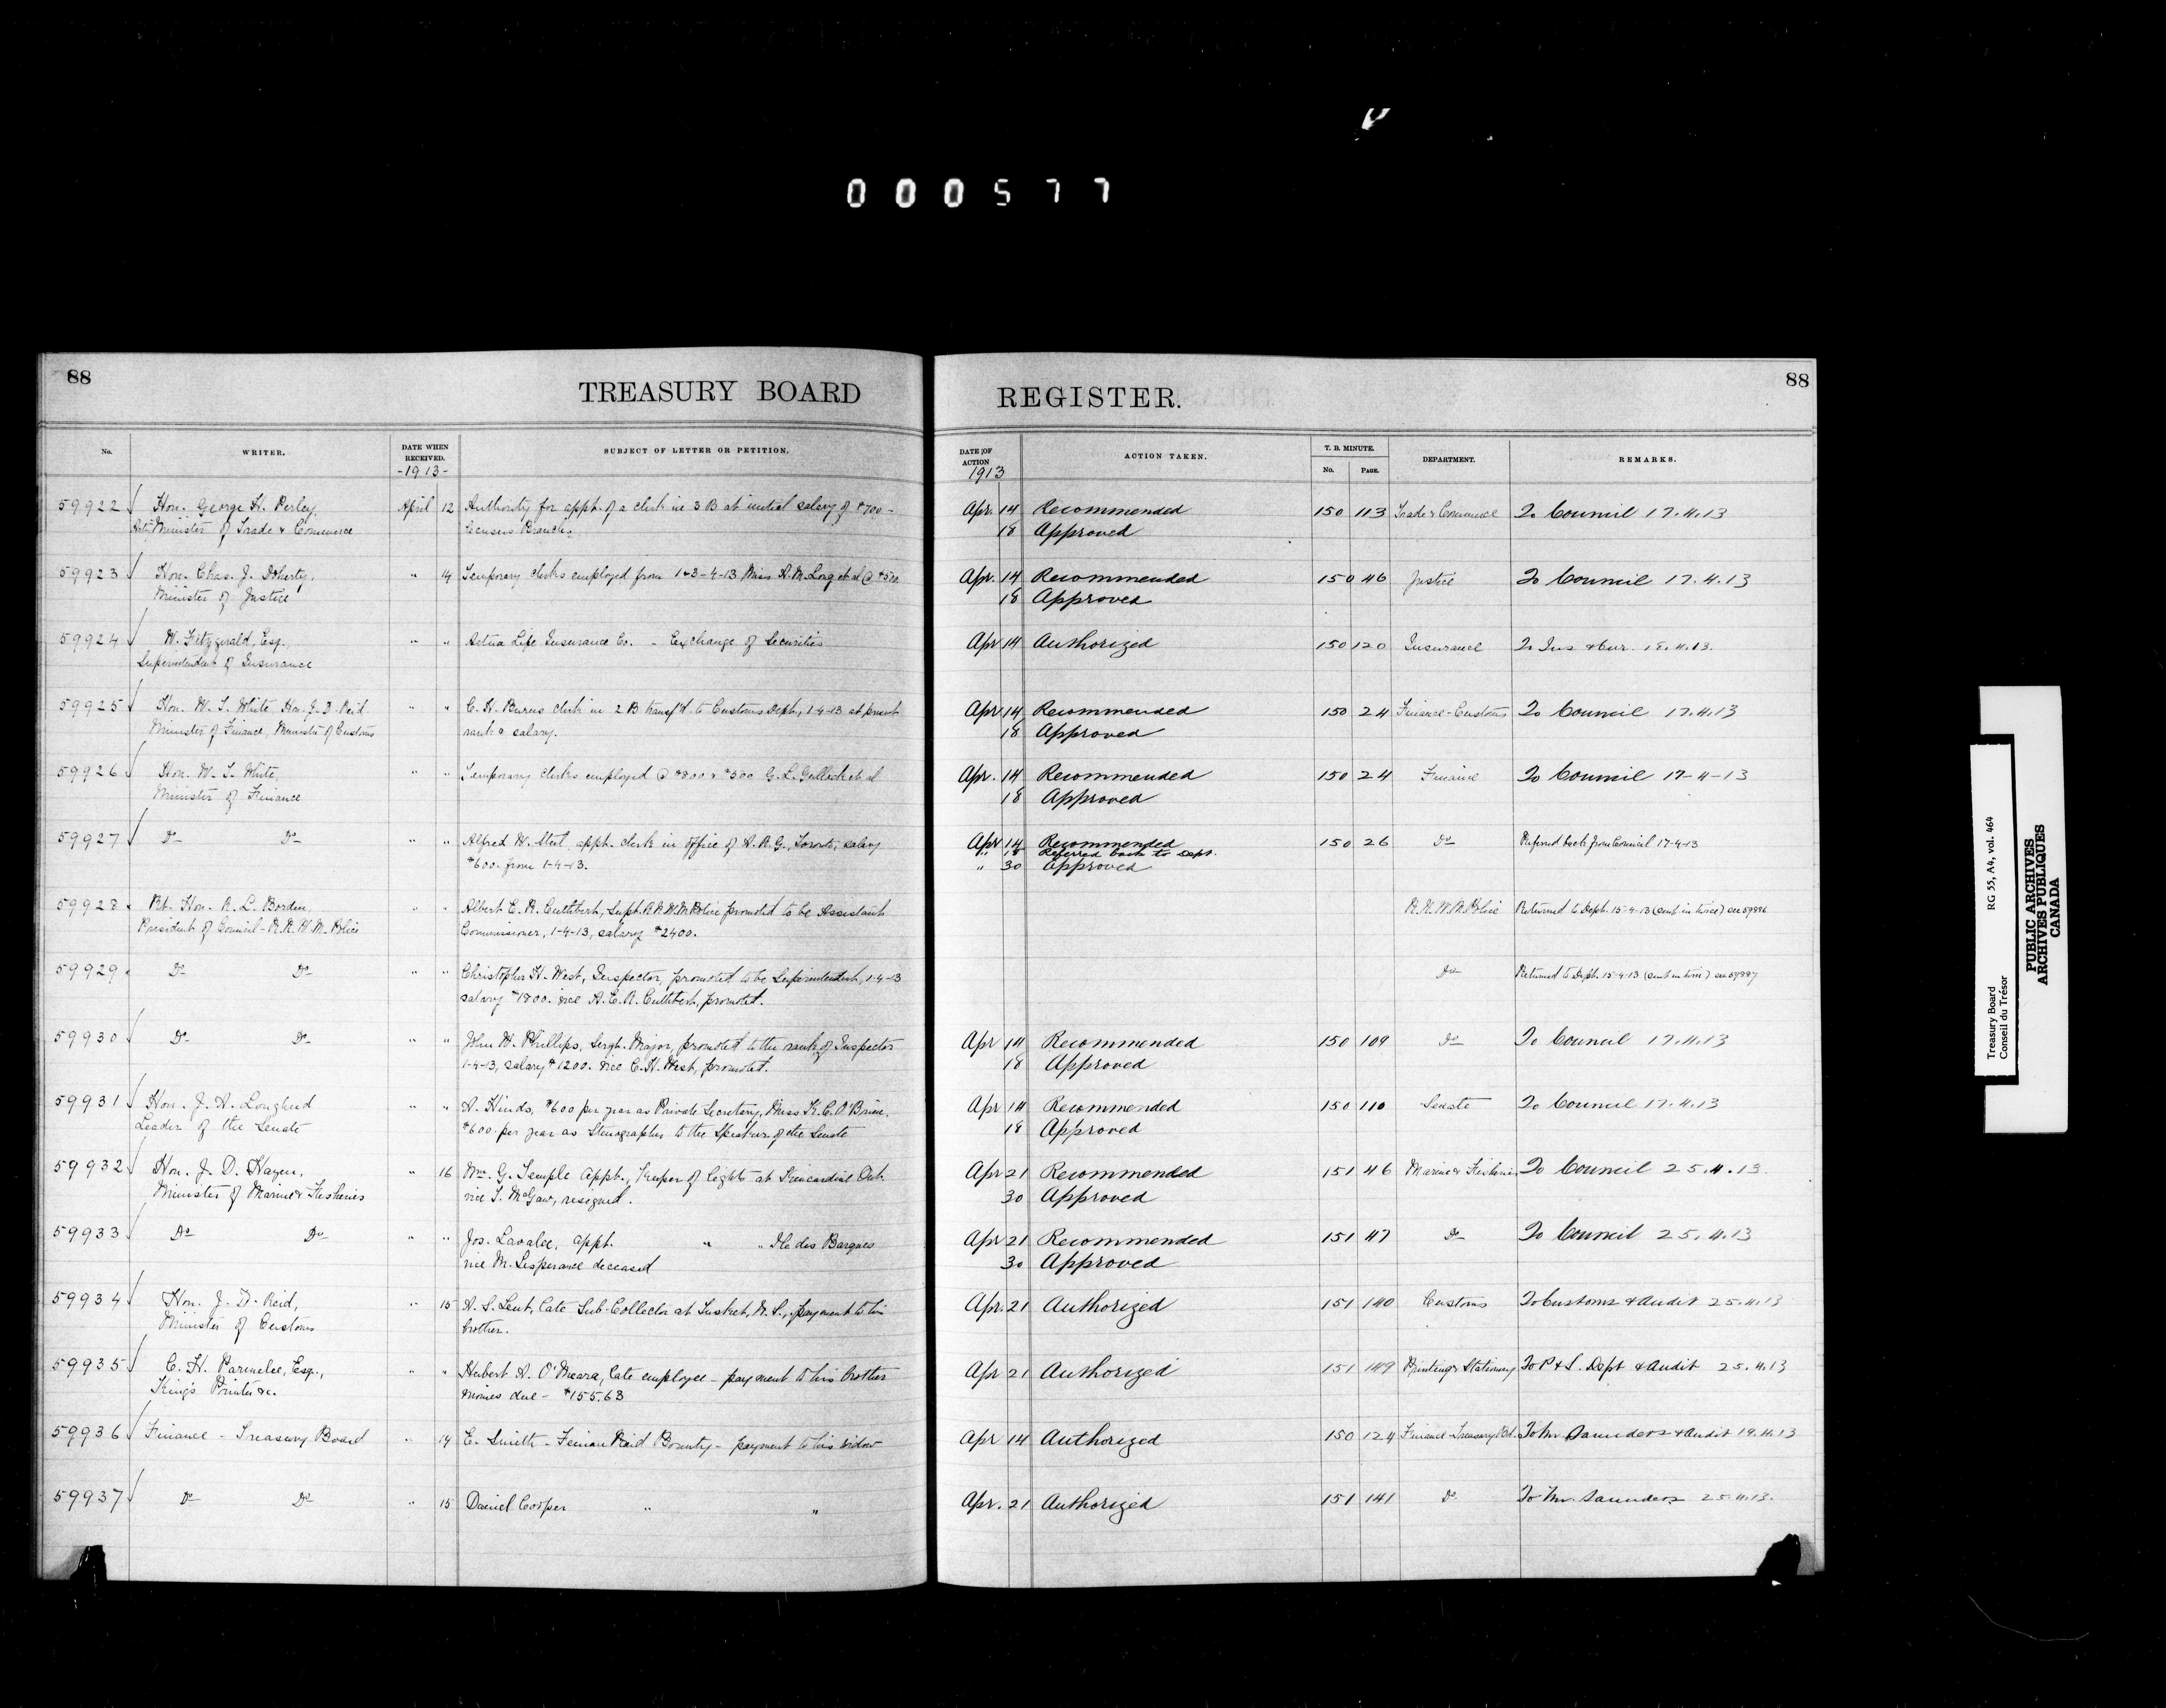 000577
88
TREASURY BOARD
REGISTER.
88
No.
WRITER.
DATE WHEN RECEIVED.
-1913-
SUBJECT OF LETTER OR PETITION.
DATE OF ACTION
1913
ACTION TAKEN.
T. B. MINUTE.
No.
PAGE.
DEPARTMENT.
REMARKS.
59922 Hon. George H. Perley, April 12 Authority for appt. of a clerk in 3 B at initial salary of $700 - Apr. 14 Recommended 150 113 Trade & Commerce To Council 17.4.13
Actg Minister of Trade & Commerce Census Branch. 18 Approved
59923 Hon. Chas. J. Doherty, " 14 Temporary clerks employed from 1 & 3-4-13 Miss A. M. Long et al @ $500 Apr. 14 Recommended 150 46 Justice To Council 17.4.13
Minister of Justice 18 Approved
59924 W. Fitzgerald, Esq., " " Aetna Life Insurance Co. - Exchange of Securities Apr 14 Authorized 150 120 Insurance To Ins & Cur. 18.4.13.
Superintendent of Insurance
59925 Hon. W. T. White Hon. J. D. Reid " " C. H. Burns clerk in 2 B transf'd to Customs Dept., 1-4-13 at present Apr 14 Recommended 150 24 Finance-Customs To Council 17.4.13
Minister of Finance, Minister of Customs rank & salary. 18 Approved
59926 Hon. W. T. White, " " Temporary clerks employed @ $800 & $500 G. L. et al Apr. 14 Recommended 150 24 Finance To Council 17-4-13
Minister of Finance 18 Approved
59927 Do Do " " Alfred W. appt. clerk in office of A. R. G., Toronto, salary Apr 14 Recommended 150 26 Do Referred back from Council 17-4-13
$600. from 1-4-13. " 18 Referred back to Dept.
" 30 Approved
59928 Rt. Hon. R. L. Borden, " " Albert E. R. Cuthbert, Supt. R.N.W.M. Police promoted to be Assistant R.N.W.M. Police Returned to Dept. 15-4-13 (sent in twice) see 59886
President of Council - R.N.W.M. Police Commissioner, 1-4-13, salary $2400.
59929 Do Do " " Christopher H. West, Inspector, promoted to be Superintendent, 1-4-13 Do Returned to Dept. 15-4-13 (sent in twice) see 59887
salary $1800. vice A. E. R. Cuthbert, promoted.
59930 Do Do " " John W. Phillips, Sergt. Major, promoted to the rank of Inspector Apr 14 Recommended 150 109 Do To Council 17.4.13
1-4-13, salary $1200. vice C. H. West, promoted. 18 Approved
59931 Hon. J. A. Lougheed " " A. Hinds, $600 per year as Private Secretary, Miss K. C. O'Brien, Apr 14 Recommended 150 110 Senate To Council 17.4.13
Leader of the Senate $600. per year as Stenographer to the Speaker of the Senate 18 Approved
59932 Hon. J. D. Hazen, " 16 Wm. G. Temple appt., Keeper of lights at Kincardine Ont. Apr 21 Recommended 151 46 Marine & Fisheries To Council 25.4.13.
Minister of Marine & Fisheries vice T. McGaw, resigned. 30 Approved
59933 Do Do " " Jos. Lavalee, appt. " " Ile des Barques Apr 21 Recommended 151 47 Do To Council 25.4.13
vice M. Lesperance deceased 30 Approved
59934 Hon. J. D. Reid, " 15 A. S. Lent, late Sub-Collector at Tusket, N.S., payment to his Apr. 21 Authorized 151 140 Customs To Customs & Audit 25.4.13
Minister of Customs brother.
59935 C. H. Parmelee, Esq., " " Herbert A. O'Meara, late employee - payment to his brother Apr 21 Authorized 151 149 Printing & Stationery To P & S. Dept & Audit 25.4.13
King's Printer &c. monies due - $155.63
59936 Finance - Treasury Board " 14 E. Smith - Fenian Raid Bounty - payment to his widow Apr 14 Authorized 150 124 Finance-Treasury Bd. To Mr Saunders & Audit 19.4.13
59937 Do Do " 15 Daniel Cooper " " Apr. 21 Authorized 151 141 Do. To Mr. Saunders 25.4.13.
Treasury Board
Conseil du Trésor
RG 55, A4, vol. 464
PUBLIC ARCHIVES
ARCHIVES PUBLIQUES
CANADA